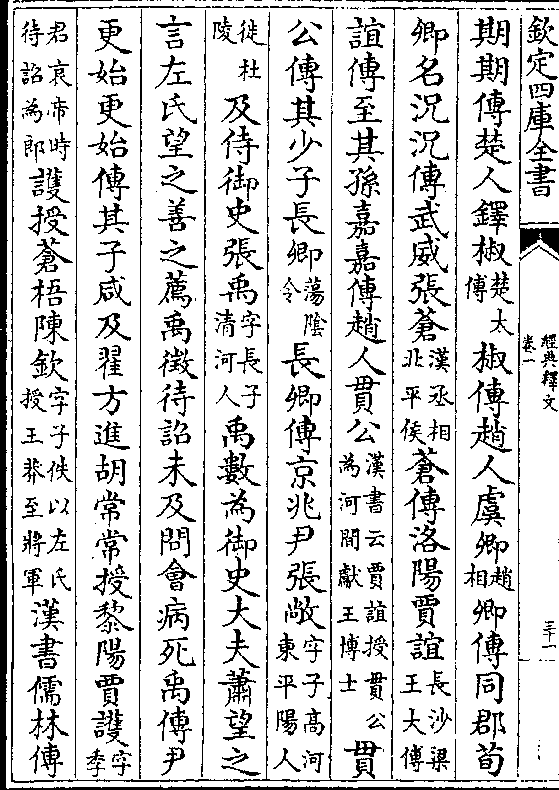 欽定四庫全書
經典釋文
卷一
三十一
期期傳楚人鐸椒楚太傅椒傳趙人虞卿趙相卿傳同郡荀
卿名況況傳武威張蒼漢丞相北平侯蒼傳洛陽賈誼長沙梁王大傅
誼傳至其孫嘉嘉傳趙人貫公漢書云賈誼授貫公為河間獻王博士貫
公傳其少子長卿蕩陰令長卿傳京兆尹張敞字子高河東平陽人
徙杜陵及侍御史張禹字長子清河人禹數為御史大夫蕭望之
言左氏望之善之薦禹徵待詔未及問會病死禹傳尹
更始更始傳其子咸及翟方進胡常常授黎陽賈護字季
君哀帝時待詔為郎護授蒼梧陳欽字子佚以左氏授王莽至將軍漢書儒林傳